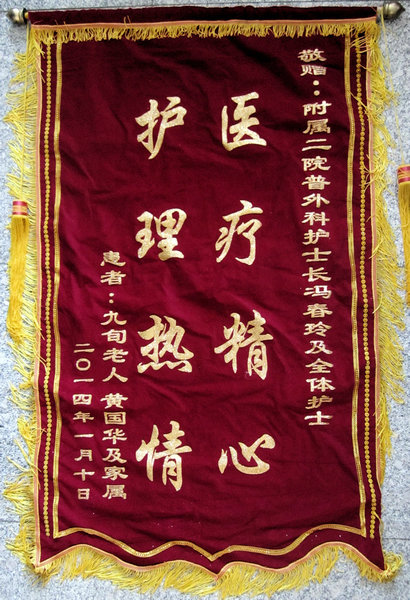 敬赠：附属二院普外科护士长冯春玲及全体护士
医疗精心
护理热情
患者：九旬老人 黄国华及家属
二〇一四年一月十日